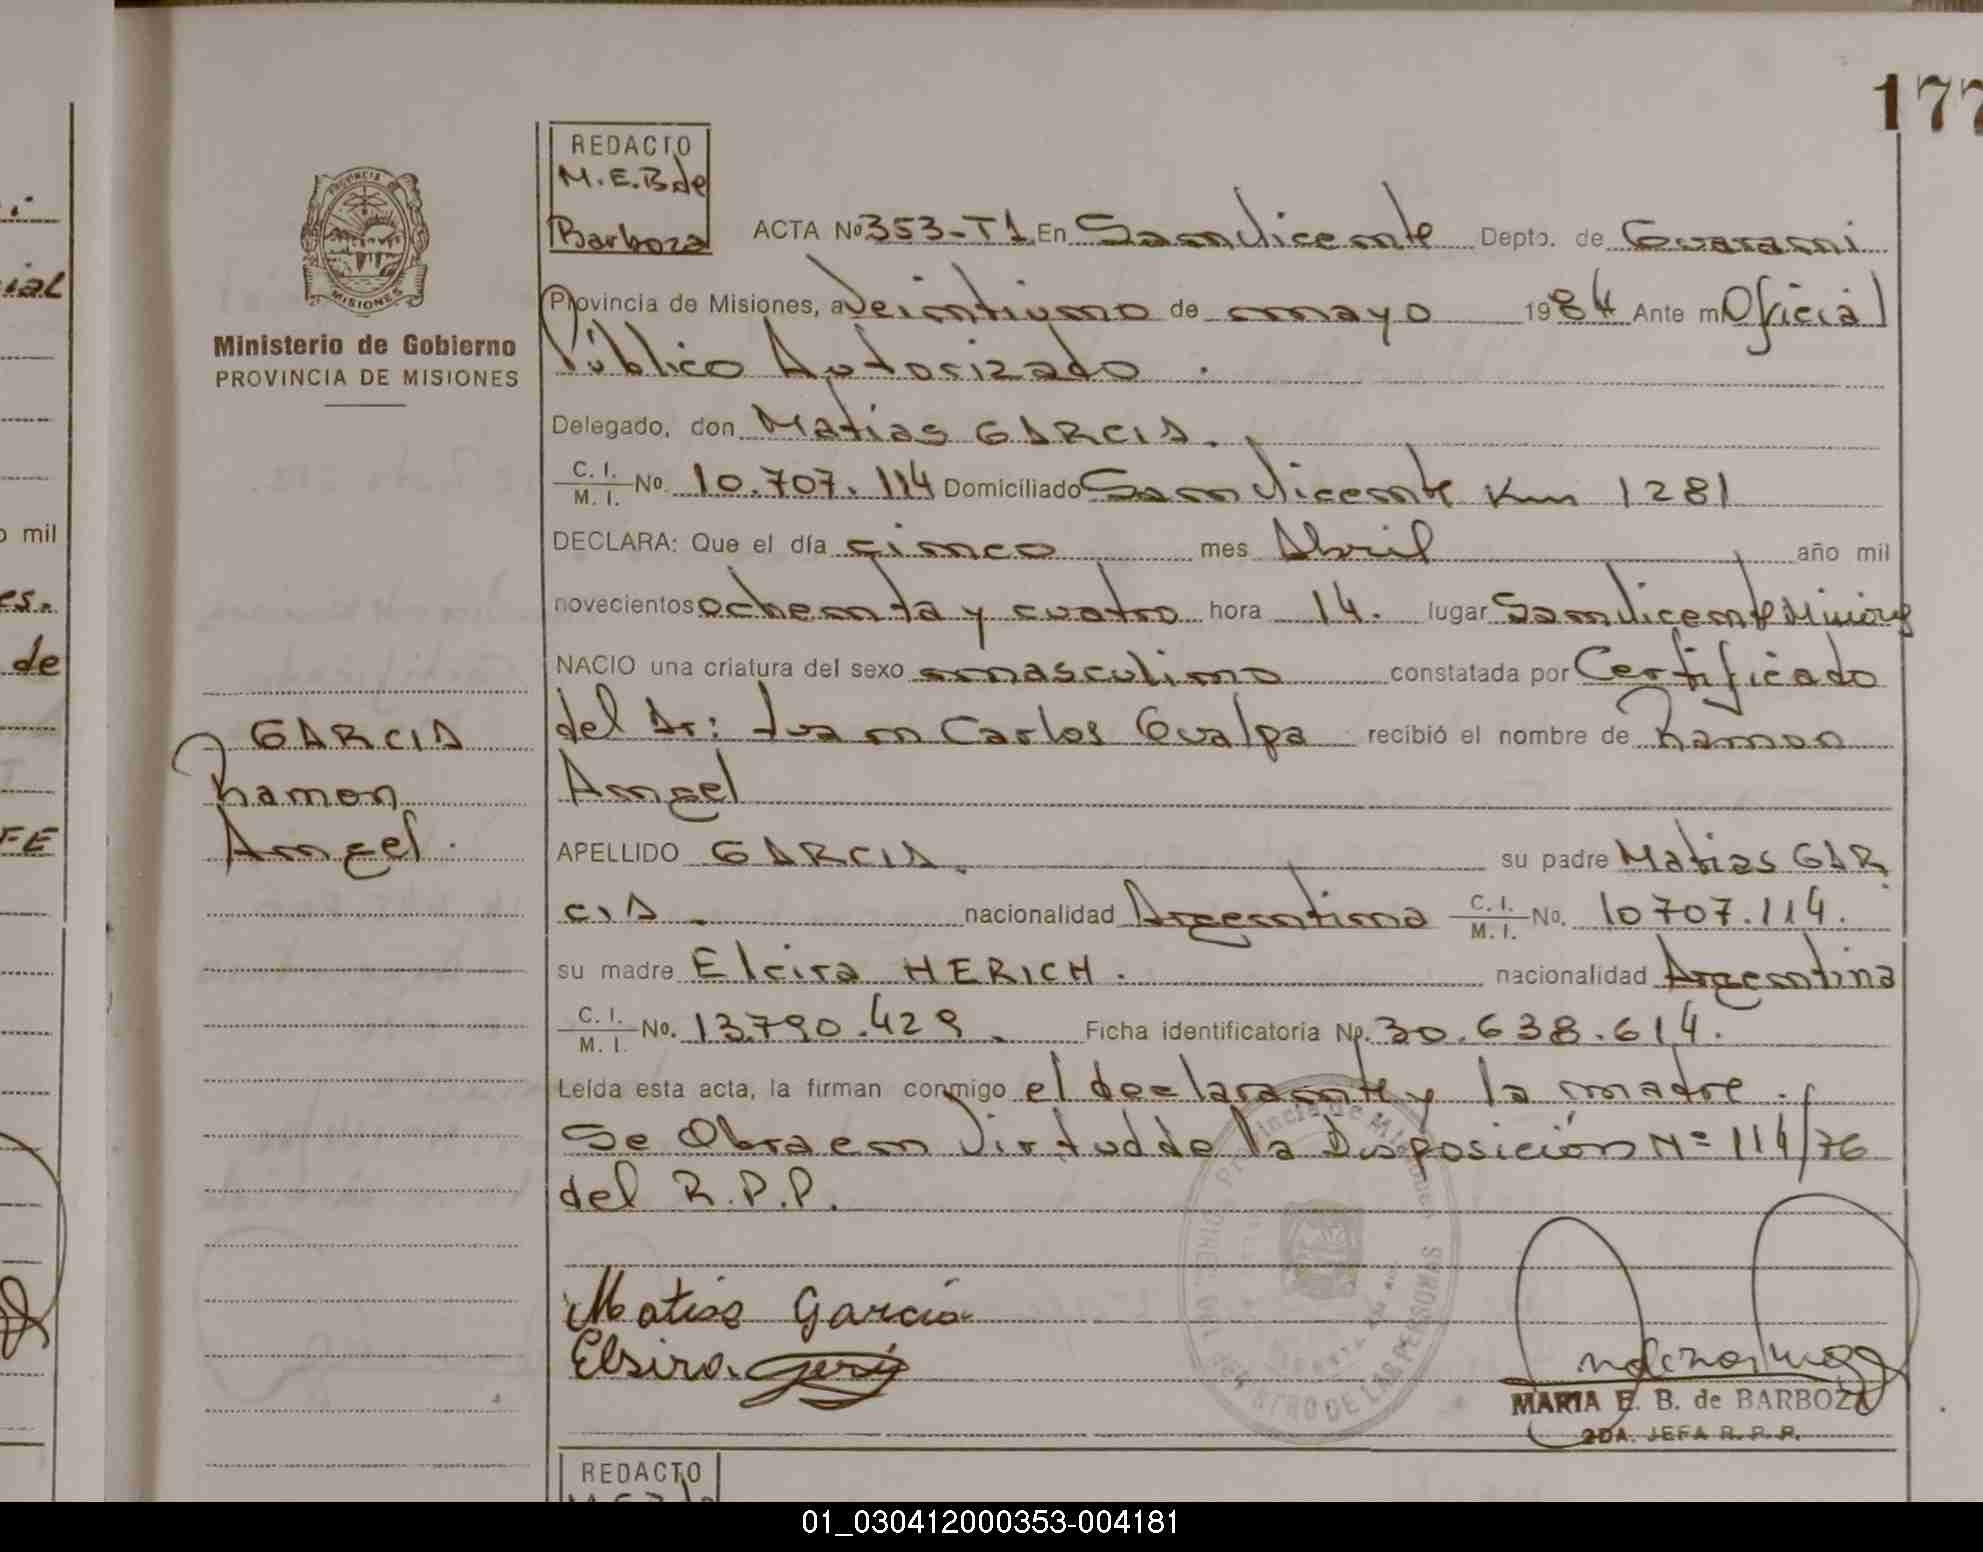 177
REDACTO
M.E.B de
Barboza
PROVINCIA DE
MISIONES
Ministerio de Gobierno
PROVINCIA DE MISIONES
ACTA Nº 353-T1 En San Vicente Depto. de Guarani
Provincia de Misiones, a veintiuno de mayo 1984 Ante mi Oficial
Público Autorizado.
Delegado, don Matias GARCIA.
C. I. / M. I. Nº 10.707.114 Domiciliado San Vicente Km 1281
DECLARA: Que el día cinco mes Abril año mil
novecientos ochenta y cuatro hora 14. lugar San Vicente Misiones
NACIO una criatura del sexo masculino constatada por Certificado
del Dr: Juan Carlos Gualpa recibió el nombre de Ramon
Angel
GARCIA
Ramon
Angel.
APELLIDO GARCIA. su padre Matias GAR
CIA. nacionalidad Argentina C. I. / M. I. No. 10707.114.
su madre Elcira HERICH. nacionalidad Argentina
C. I. / M. I. No. 13.790.429. Ficha identificatoria Nº. 30.638.614.
Leída esta acta, la firman conmigo el declarante y la madre.
Se Obra en Virtud de la Disposición Nº 114/76
del R.P.P.
Matias Garcia
Elsira
Provincia De Misiones
REGISTRO DE LAS PERSONAS
MARIA E. B. de BARBOZA
2DA. JEFA R. P. P.
REDACTO
ial
o mil
es.
de
FE
01_030412000353-004181